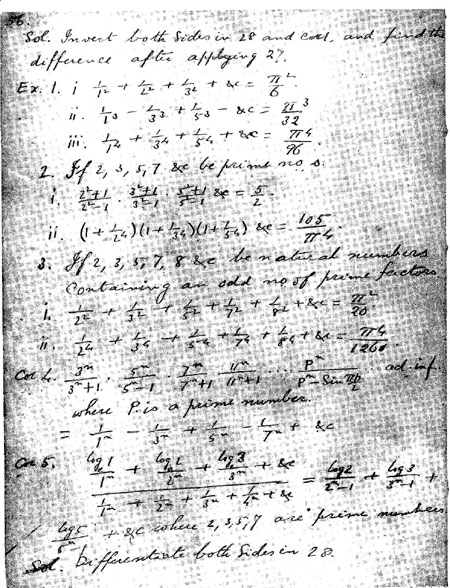 86.
Sol. Invert both sides in 28 and cor1. and find the
difference after applying 27.
Ex. 1. i 1/1² + 1/2² + 1/3² + &c = π²/6
ii. 1/1³ - 1/3³ + 1/5³ - &c = π³/32
iii. 1/1⁴ + 1/3⁴ + 1/5⁴ + &c = π⁴/96
2. If 2, 3, 5, 7 &c be prime nos.
i. (2²+1)/(2²-1) · (3²+1)/(3²-1) · (5²+1)/(5²-1) &c = 5/2.
ii. (1+1/2⁴)(1+1/3⁴)(1+1/5⁴) &c = 105/π⁴.
3. If 2, 3, 5, 7, 8 &c be natural numbers
containing an odd no of prime factors
i. 1/2² + 1/3² + 1/5² + 1/7² + 1/8² + &c = π²/20
ii. 1/2⁴ + 1/3⁴ + 1/5⁴ + 1/7⁴ + 1/8⁴ + &c = π⁴/1260.
Cor 4. 3ⁿ/(3ⁿ+1) · 5ⁿ/(5ⁿ-1) · 7ⁿ/(7ⁿ+1) · 11ⁿ/(11ⁿ+1) ... Pⁿ/(Pⁿ - Sin πp/2) ad. inf.
where P is a prime number.
= 1/1ⁿ - 1/3ⁿ + 1/5ⁿ - 1/7ⁿ + &c
Cor 5. (log 1/1ⁿ + log 2/2ⁿ + log 3/3ⁿ + &c)/(1/1ⁿ + 1/2ⁿ + 1/3ⁿ + 1/4ⁿ + &c) = log 2/(2ⁿ-1) + log 3/(3ⁿ-1) +
log 5/(5ⁿ-1) + &c where 2, 3, 5, 7 are prime numbers
Sol. Differentiate both sides in 28.